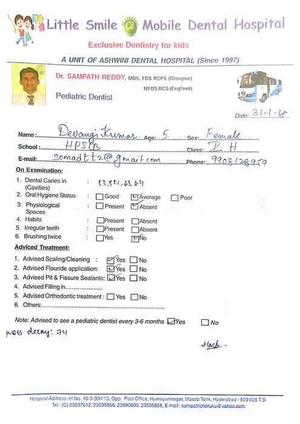 Little Smile Mobile Dental Hospital
Exclusive Dentistry for kids
A UNIT OF ASHWINI DENTAL HOSPITAL (Since 1997)
Dr. SAMPATH REDDY, MDS, FDS RCPS (Glasgow)
MFDS RCS (England)
Pediatric Dentist
Date: 31-1-18
Name: Devangi Kumar Age: 5 Sex: Female
School: HPS Class:
E-mail: Phone:
On Examination:
1. Dental Caries in :
(Cavities)
2. Oral Hygiene Status : Good Average Poor
3. Physiological : Present Absent
Spaces
4. Habits : Present Absent
5. Irregular teeth : Present Absent
6. Brushing twice : Yes No
Adviced Treatment:
1. Advised Scaling/Cleaning : Yes No
2. Advised Flouride application: Yes No
3. Advised Pit & Fissure Sealants: Yes No
4. Advised Filling in
5. Advised Orthodontic treatment : Yes No
6. Others:
Note: Advised to see a pediatric dentist every 3-6 months Yes No
decay: 74
Hospital Address: H.No. 10-3-304/13, Opp. Post Office, Humayunnagar, Masab Tank, Hyderabad - 500 028 T.S